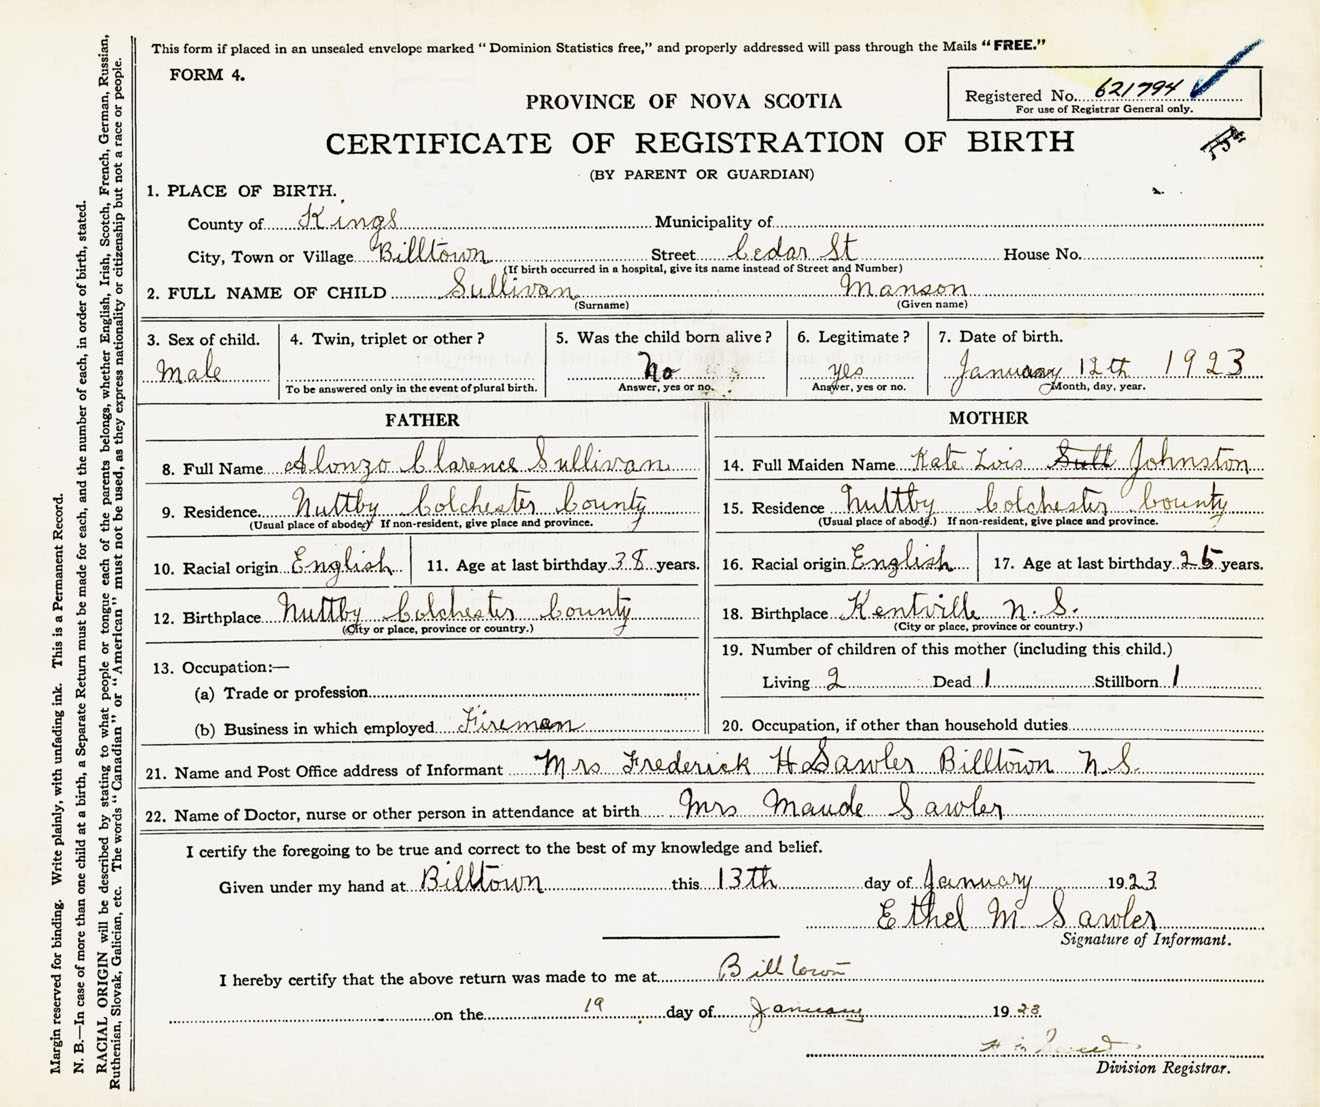 This form if placed in an unsealed envelope marked "Dominion Statistics free," and properly addressed will pass through the Mails "FREE."
FORM 4.
Registered No. 621794
For use of Registrar General only.
PROVINCE OF NOVA SCOTIA
CERTIFICATE OF REGISTRATION OF BIRTH
(BY PARENT OR GUARDIAN)
1. PLACE OF BIRTH.
County of Kings Municipality of
City, Town or Village Billtown Street Cedar St House No.
(If birth occurred in a hospital, give its name instead of Street and Number)
2. FULL NAME OF CHILD Sullivan Manson
(Surname) (Given name)
3. Sex of child. 4. Twin, triplet or other? 5. Was the child born alive? 6. Legitimate? 7. Date of birth.
Male No yes January 12th 1923
To be answered only in the event of plural birth. Answer, yes or no. Answer, yes or no. Month, day, year.
FATHER MOTHER
8. Full Name Alonzo Clarence Sullivan 14. Full Maiden Name Kate Lois Sull Johnston
9. Residence Nuttby Colchester County 15. Residence Nuttby Colchester County
(Usual place of abode) If non-resident, give place and province. (Usual place of abode.) If non-resident, give place and province.
10. Racial origin English 11. Age at last birthday 38 years. 16. Racial origin English 17. Age at last birthday 25 years.
12. Birthplace Nuttby Colchester County 18. Birthplace Kentville N.S.
(City or place, province or country.) (City or place, province or country.)
13. Occupation:— 19. Number of children of this mother (including this child.)
(a) Trade or profession Living 2 Dead 1 Stillborn 1
(b) Business in which employed Fireman 20. Occupation, if other than household duties
21. Name and Post Office address of Informant Mrs Frederick H Sawler Billtown N.S.
22. Name of Doctor, nurse or other person in attendance at birth Mrs Maude Sawler
I certify the foregoing to be true and correct to the best of my knowledge and belief.
Given under my hand at Billtown this 13th day of January 1923
Ethel M Sawler
Signature of Informant.
I hereby certify that the above return was made to me at Billtown
on the 19 day of January 1923
Division Registrar.
Margin reserved for binding. Write plainly, with unfading ink. This is a Permanent Record.
N. B.—In case of more than one child at a birth, a Separate Return must be made for each, and the number of each, in order of birth, stated.
RACIAL ORIGIN will be described by stating to what people or tongue each of the parents belongs, whether English, Irish, Scotch, French, German, Russian,
Ruthenian, Slovak, Galician, etc. The words "Canadian" or "American" must not be used, as they express nationality or citizenship but not a race or people.